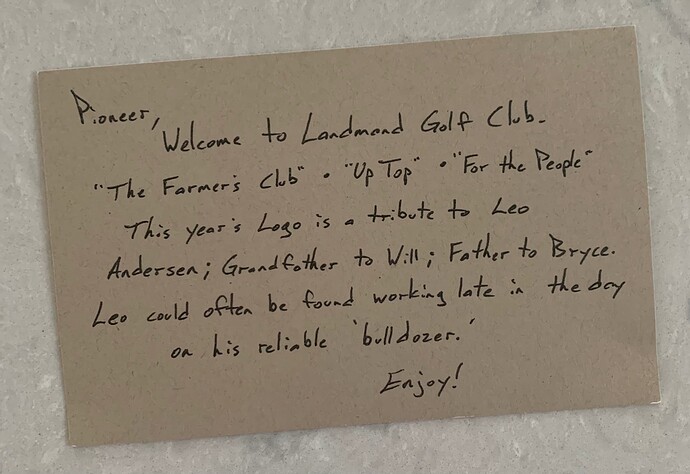 Pioneer,
Welcome to Landmand Golf Club.
"The Farmer's Club" • "Up Top" • "For the People"
This year's Logo is a tribute to Leo
Andersen; Grandfather to Will; Father to Bryce.
Leo could often be found working late in the day
on his reliable 'bulldozer.'
Enjoy!